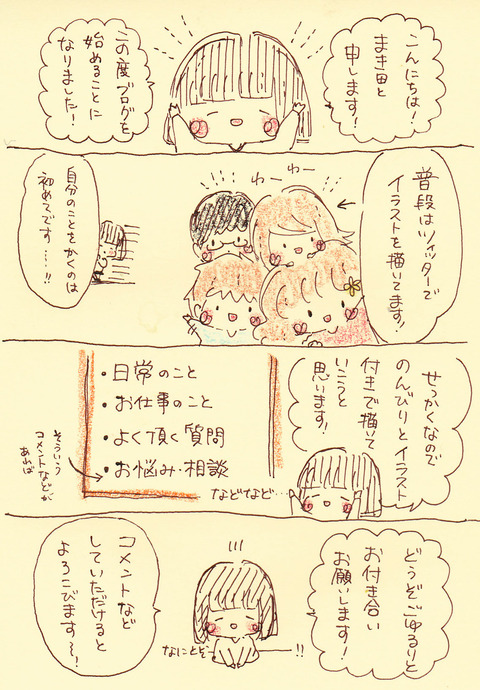 こんにちは!
まき田と
申します!
この度ブログを
始めることに
なりました!
普段はツイッターで
イラストを描いてます!
わーわー
自分のことをかくのは
初めてです…!!
せっかくなので
のんびりとイラスト
付きで描いて
いこうと
思います!
・日常のこと
・お仕事のこと
・よく頂く質問
・お悩み・相談
などなど…
そういう
コメントなどが
あれば
どうぞごゆるりと
お付き合い
お願いします!
コメントなど
していただけると
よろこびます〜!
なにとぞ
!!